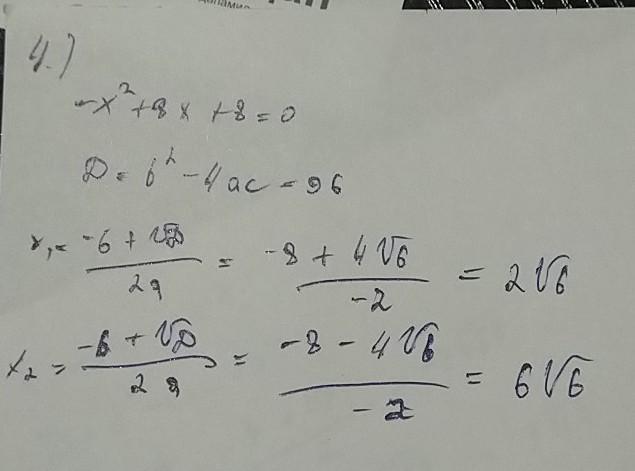 4.)
-x²+8x+8=0
D=b²-4ac=96
x₁=(-b+√D)/(2a)=(-8+4√6)/(-2)=2√6
x₂=(-b+√D)/(2a)=(-8-4√6)/(-2)=6√6